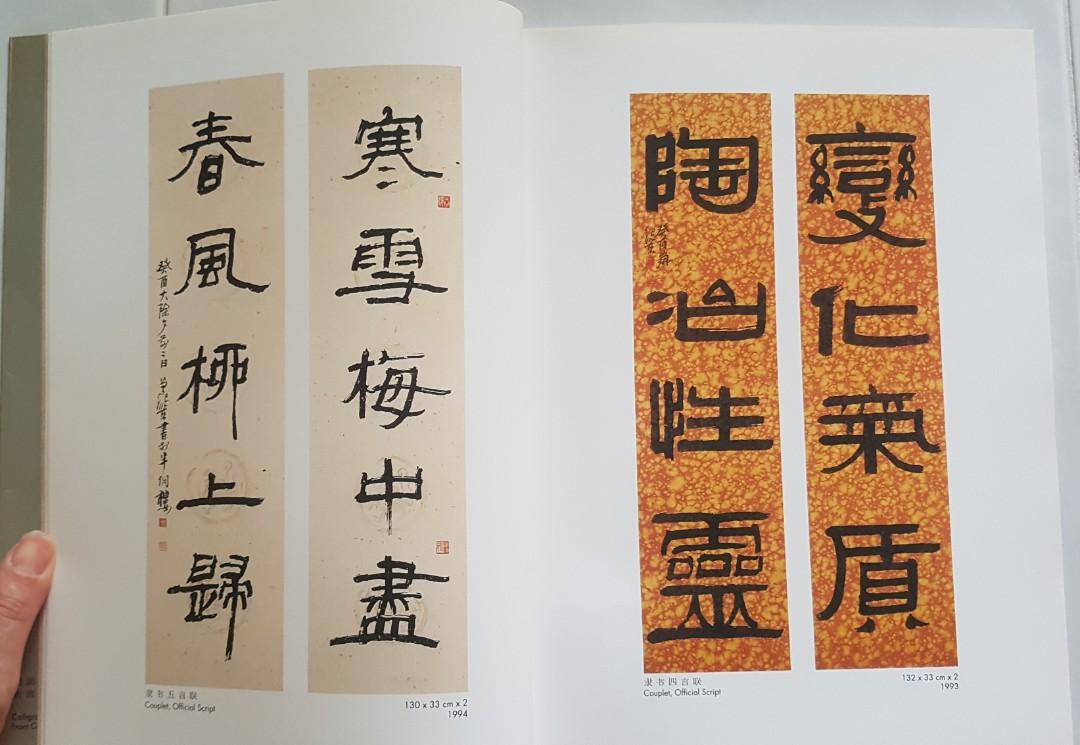 寒雪梅中盡
春風柳上歸
癸酉大除夕前二日
隶书五言联
Couplet, Official Script
130 x 33 cm x 2
1994
變化氣質
陶冶性靈
癸酉
隶书四言联
Couplet, Official Script
132 x 33 cm x 2
1993